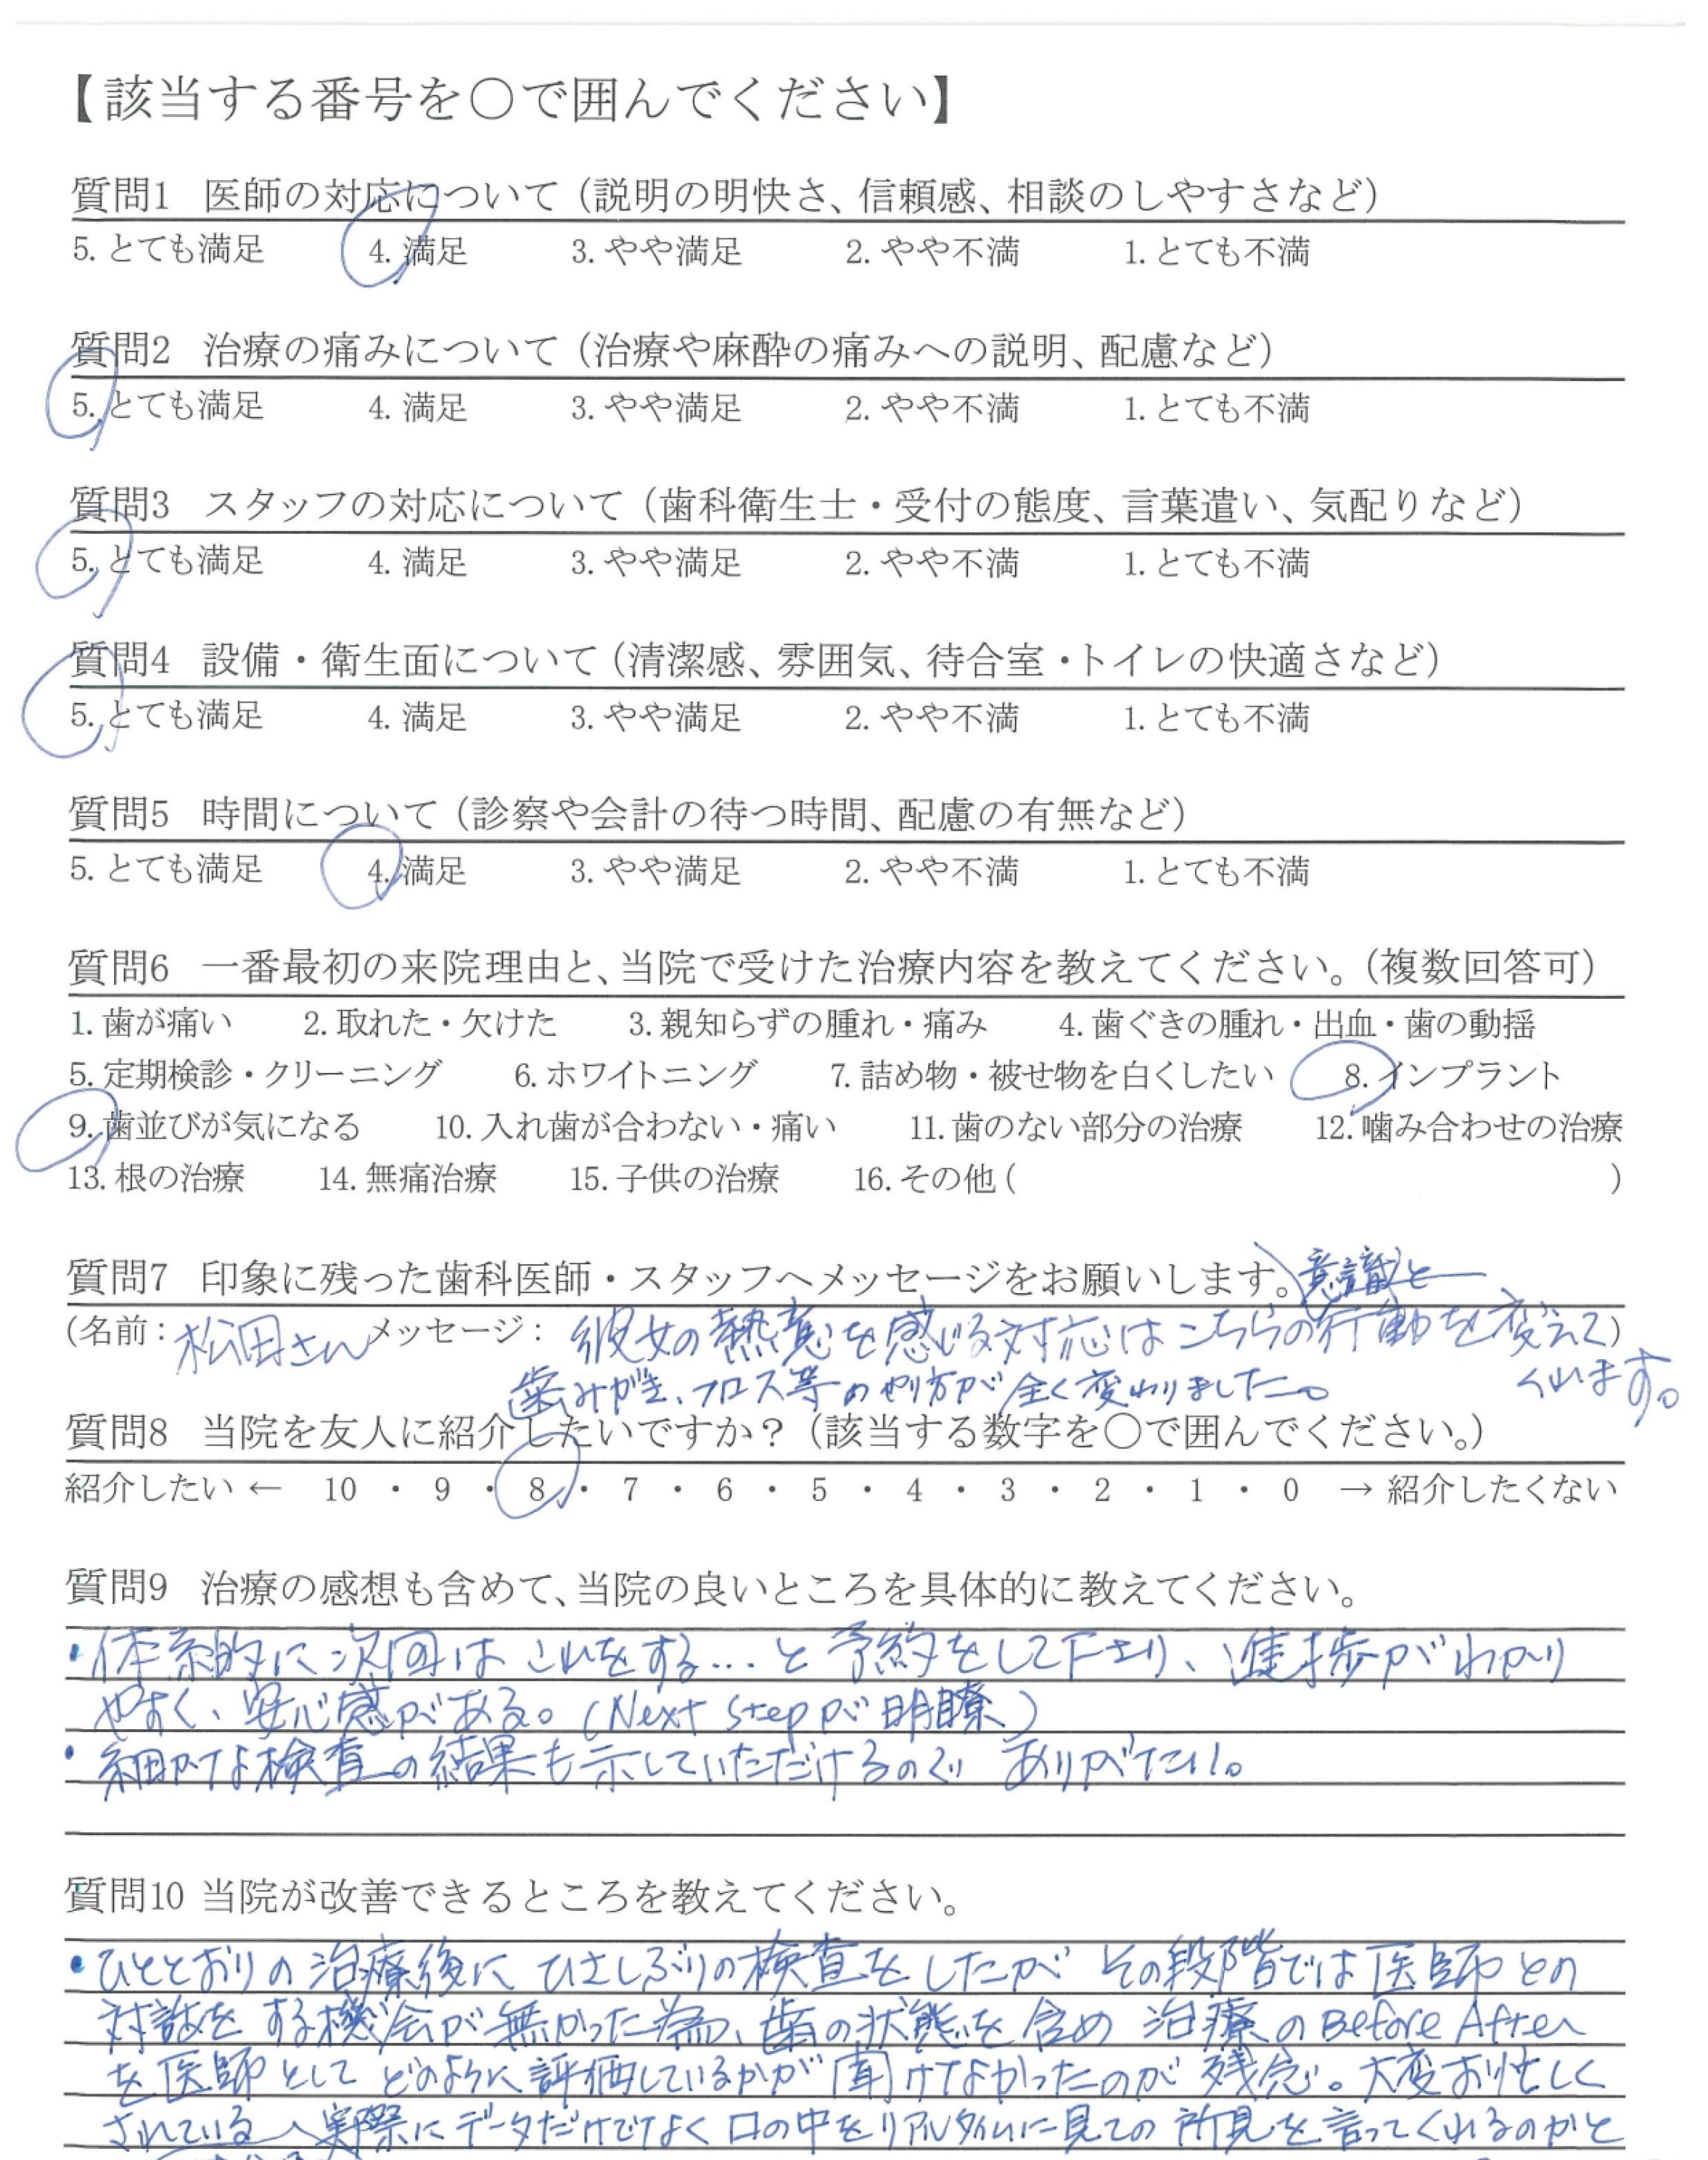 【該当する番号を○で囲んでください】
質問1 医師の対応について（説明の明快さ、信頼感、相談のしやすさなど）
5. とても満足 4. 満足 3. やや満足 2. やや不満 1. とても不満
質問2 治療の痛みについて（治療や麻酔の痛みへの説明、配慮など）
5. とても満足 4. 満足 3. やや満足 2. やや不満 1. とても不満
質問3 スタッフの対応について（歯科衛生士・受付の態度、言葉遣い、気配りなど）
5. とても満足 4. 満足 3. やや満足 2. やや不満 1. とても不満
質問4 設備・衛生面について（清潔感、雰囲気、待合室・トイレの快適さなど）
5. とても満足 4. 満足 3. やや満足 2. やや不満 1. とても不満
質問5 時間について（診察や会計の待つ時間、配慮の有無など）
5. とても満足 4. 満足 3. やや満足 2. やや不満 1. とても不満
質問6 一番最初の来院理由と、当院で受けた治療内容を教えてください。（複数回答可）
1. 歯が痛い 2. 取れた・欠けた 3. 親知らずの腫れ・痛み 4. 歯ぐきの腫れ・出血・歯の動揺
5. 定期検診・クリーニング 6. ホワイトニング 7. 詰め物・被せ物を白くしたい 8. インプラント
9. 歯並びが気になる 10. 入れ歯が合わない・痛い 11. 歯のない部分の治療 12. 噛み合わせの治療
13. 根の治療 14. 無痛治療 15. 子供の治療 16. その他（ ）
質問7 印象に残った歯科医師・スタッフへメッセージをお願いします。
意識と
（名前：松田さん メッセージ：彼女の熱意を感じる対応はこちらの行動を変えて）
くれます。
歯みがき、フロス等のやり方が全く変わりました。
質問8 当院を友人に紹介したいですか？（該当する数字を○で囲んでください。）
紹介したい ← 10 ・ 9 ・ 8 ・ 7 ・ 6 ・ 5 ・ 4 ・ 3 ・ 2 ・ 1 ・ 0 → 紹介したくない
質問9 治療の感想も含めて、当院の良いところを具体的に教えてください。
・体系的に次回はこれをする…と予約をして下さり、進捗がわかり
やすく、安心感がある。（Next Stepが明瞭）
・細かな検査の結果も示していただけるのでありがたい。
質問10 当院が改善できるところを教えてください。
・ひととおりの治療後にひさしぶりの検査をしたがその段階では医師との
対話をする機会が無かった為、歯の状態を含め治療のBefore After
を医師としてどのように評価しているかが聞けなかったのが残念。大変お忙しく
されている 実際にデータだけでなく口の中をリアルタイムに見ての所見を言ってくれるのかと